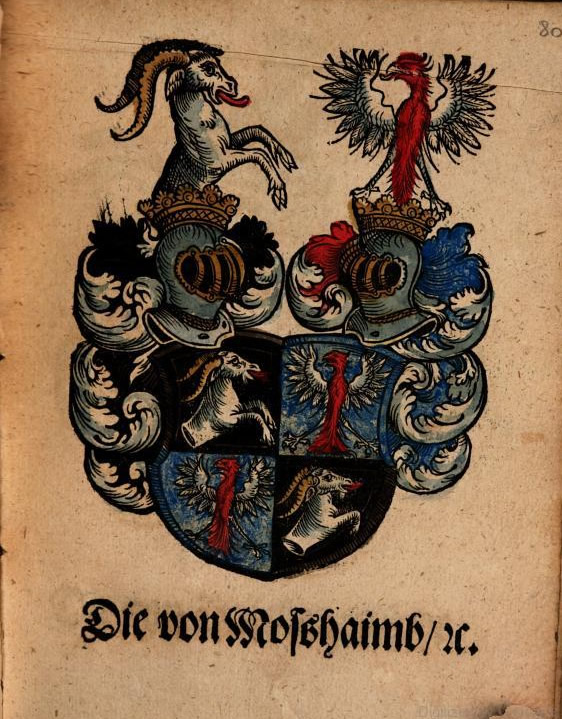 80
Die von Mosshaimb/ ꝛc.